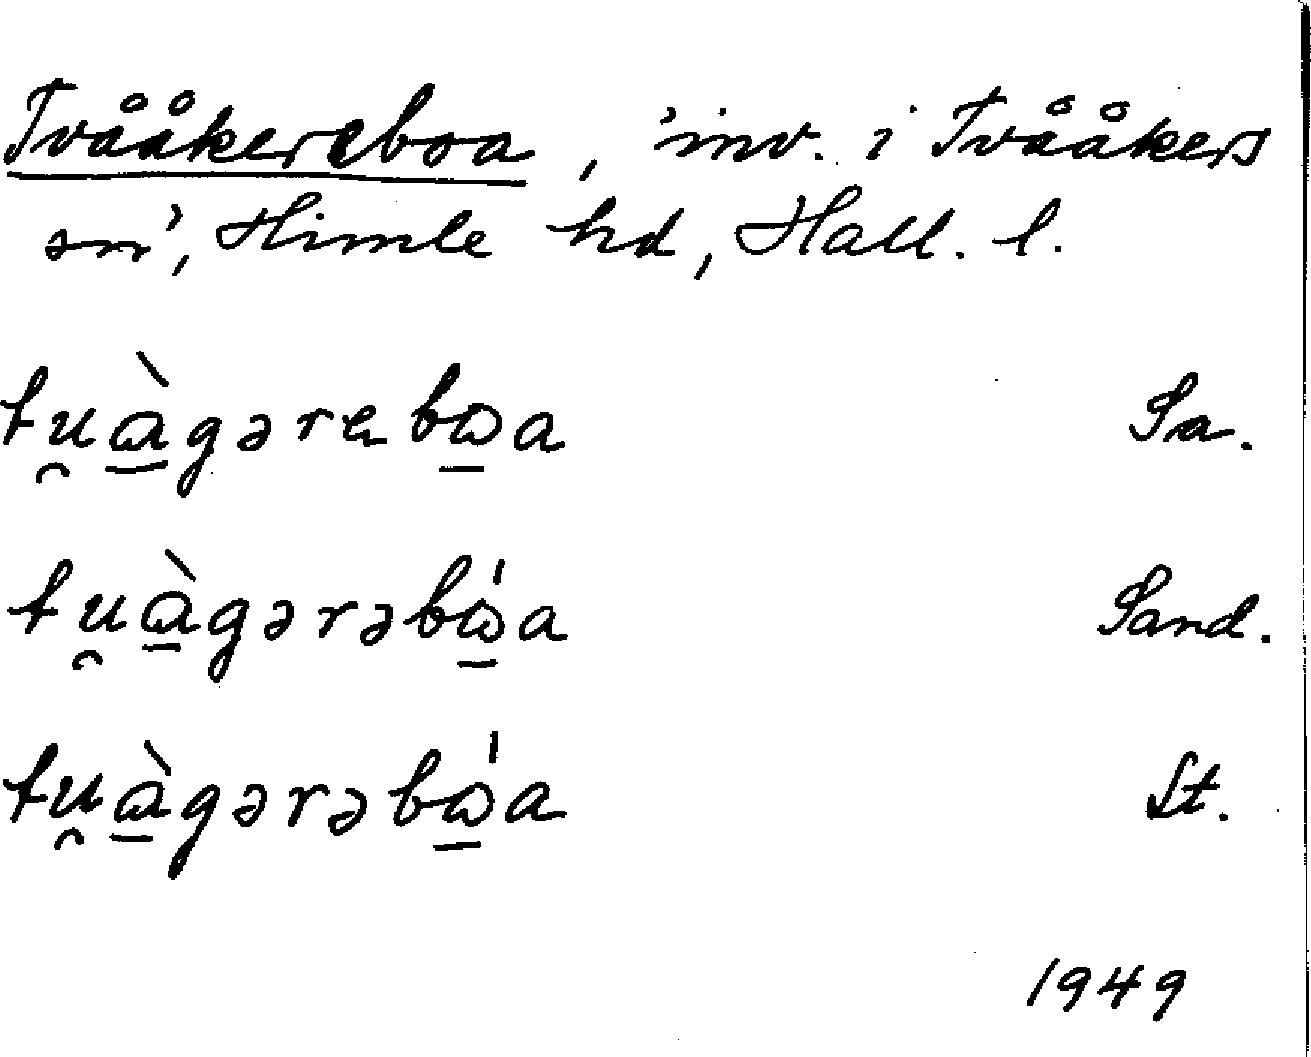 Tvååkereboa, 'inv. i Tvååkers
sn', Himle hd, Hall. l.
tu̯ɷ̱̀gərebɷ̱a Sa.
tu̯ɷ̱̀gərəbɷ̱́a Sand.
tu̯ɷ̱̀gərəbɷ̱́a St.
1949